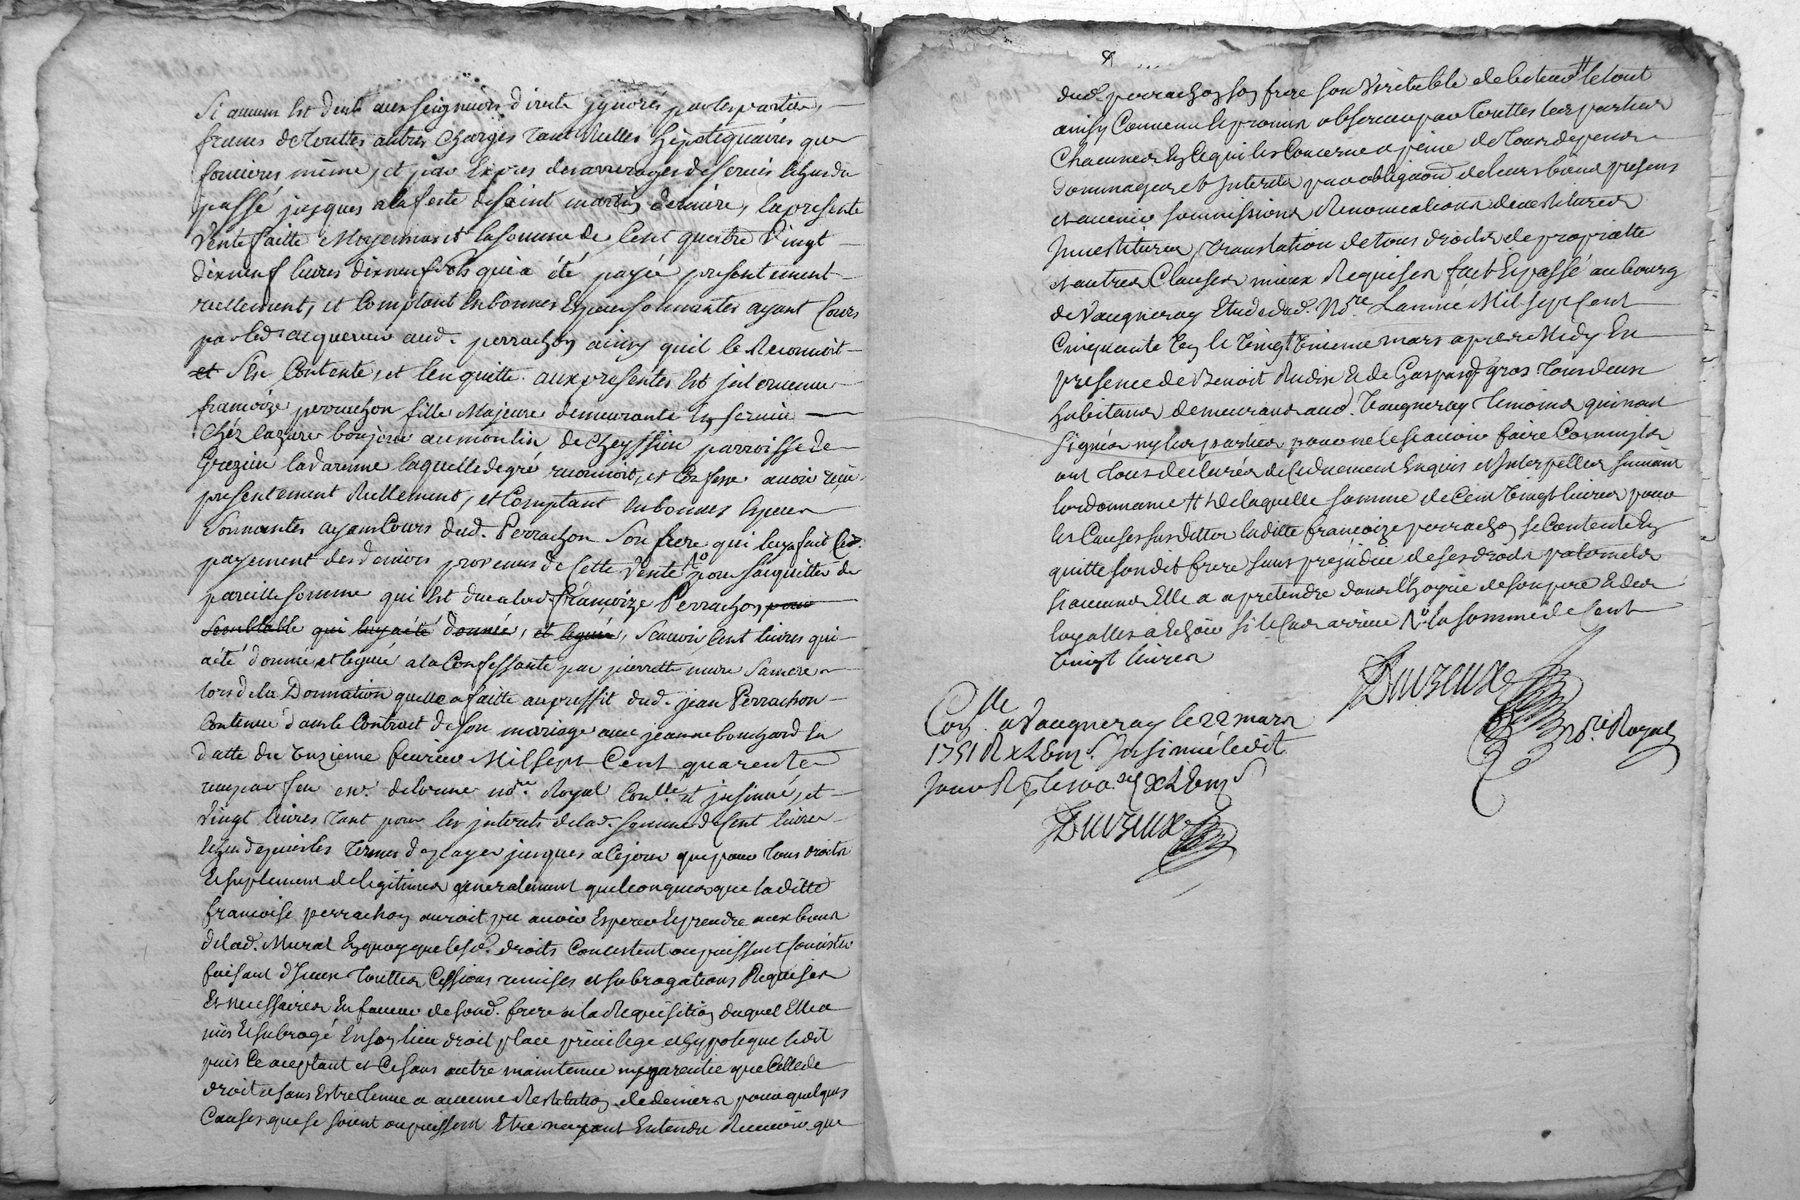 Si aucuns est deub aux seigneurs directs ignorés par les parties,
francs de touttes autres charges tant réelles hÿpotequaires que
foncieres même, et par Expres des arrerages de servis Echus du
passé jusques a la feste de saint martin derniere, la presente
Vente faitte Moyennant la somme de Cent quatre Vingt
dixneuf livres dixneuf sols qui a été payée presentement
reellement, et Comptant En bonnes Especes sonnantes ayant Cours
par led. acquereur aud. perrachon ainsy quil le Reconnoit
et s'En Contente, et l'en quitte. aux presentes Est intervenue
françoize perrachon fille Majeure demeurante En service
chéz Lazare bonjour au moulin de Cheyssieu parroisse de
Grezieu la Varenne laquelle de gré reconnoit, et Confesse avoir reçu
presentement Réellement, et Comptant En bonnes Especes
sonnantes ayant Cours dud. Perrachon son frere qui luy a fait led.
payement des deniers provenus de Cette Vente pour s'acquitter de
pareille somme qui Est due a lad. françoize Perrachon pour
semblable qui luy a été donnée, et leguée, Scavoir Cent livres qui
a été donnée et leguée a la Confessante par pierrette mure sa mere
lors de la Donnation quelle a faitte au proffit dud. jean Perrachon
Contenue dans le Contract de son mariage avec jeanne bouchard En
datte du Onzieme fevrier Mil sept Cent quarente
reçu par feu mr. delorme nore. Royal Conllé. et jnsinué, et
Vingt livres tant pour les jnterets de lad. somme de Cent livres
Echus depuis les termes d'Eplayer jusques a Cejour que pour tous droits
Et suplement de legitimes generalement quelconques que laditte
françoise perrachon auroit pu avoir Esperer Et prendre aux biens
de lad. Murat En quoy que lesd. droits Consistent ou puissent Consister
faisant d'jceux touttes Cessions remises et subrogations Requises
Et necessaires En faveur de sond. frere a la Requisition duquel Elle a
mis Et subrogé En son lieu droit place privilege et hypoteque ledit
puis Ce aceptant et Ce sans autre maintenue ny garentie que Celle de
droit et sans Estre tenue a aucune Restitution de deniers pour quelques
Causes que se soient ou puissent Etre n'ayant Entendu Recevoir que
dud. perrachon son frere son Veritable debiteur # le tout
ainsy Convenu Et promis observer par touttes les parties
Chacunes En Ce qui les Concerne a peine de tous depens
dommages et jnterets par obligaon. de leurs biens presens
et avenir soumissions Renonciations devestitures
jnvestitures, translation de tous droits de proprietté
et autres Clauses mieux Requises fait Et passé au bourg
de Vaugneray Etude dud. Nore. L'année Mil sept Cent
Cinquante Un le Vingt Unieme mars apres Midy En
presence de Benoit Rudix Et de Gaspard gros tous deux
habitans demeurans aud. Vaugneray temoins qui n'ont
signés ny les parties pour ne le Scavoir faire Comme ils
ont tous declarés de Ce duement Enquis et Interpellés suivant
lordonnance # de laquelle somme de Cent Vingt livres pour
les Causes susdittes laditte françoize perrachon se Contente En
quitte sondit frere sans prejudice de ses droits paternels
si aucuns Elle a a pretendre dans l'hoyrie de son pere Et des
loyalles a Echoir si le Cas arrive No. la somme de Cent
Vingt livres
Duvzeux
Nore. Royal
Conllé. a Vaugneray le 22 mars
1751 R x L Em s. Jnsinué ledit
jour R
Duvzeux